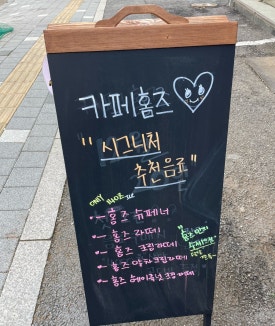 카페홈즈
"시그니처
추천음료"
ONLY
홈즈 슈페너
홈즈 라떼
홈즈 크림라떼
홈즈 말차크림라떼
홈즈 헤이즐넛크림라떼